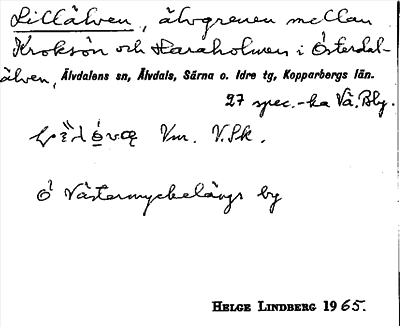 Lillälven, älvgrenen mellan
Kroksön och Haraholmen i Österdal-
älven, Älvdalens sn, Älvdals, Särna o. Idre tg, Kopparbergs län.
27 spec.-ka Vä. Bly.
Vm. V.Sk.
Västermyckelängs by
HELGE LINDBERG 1965.